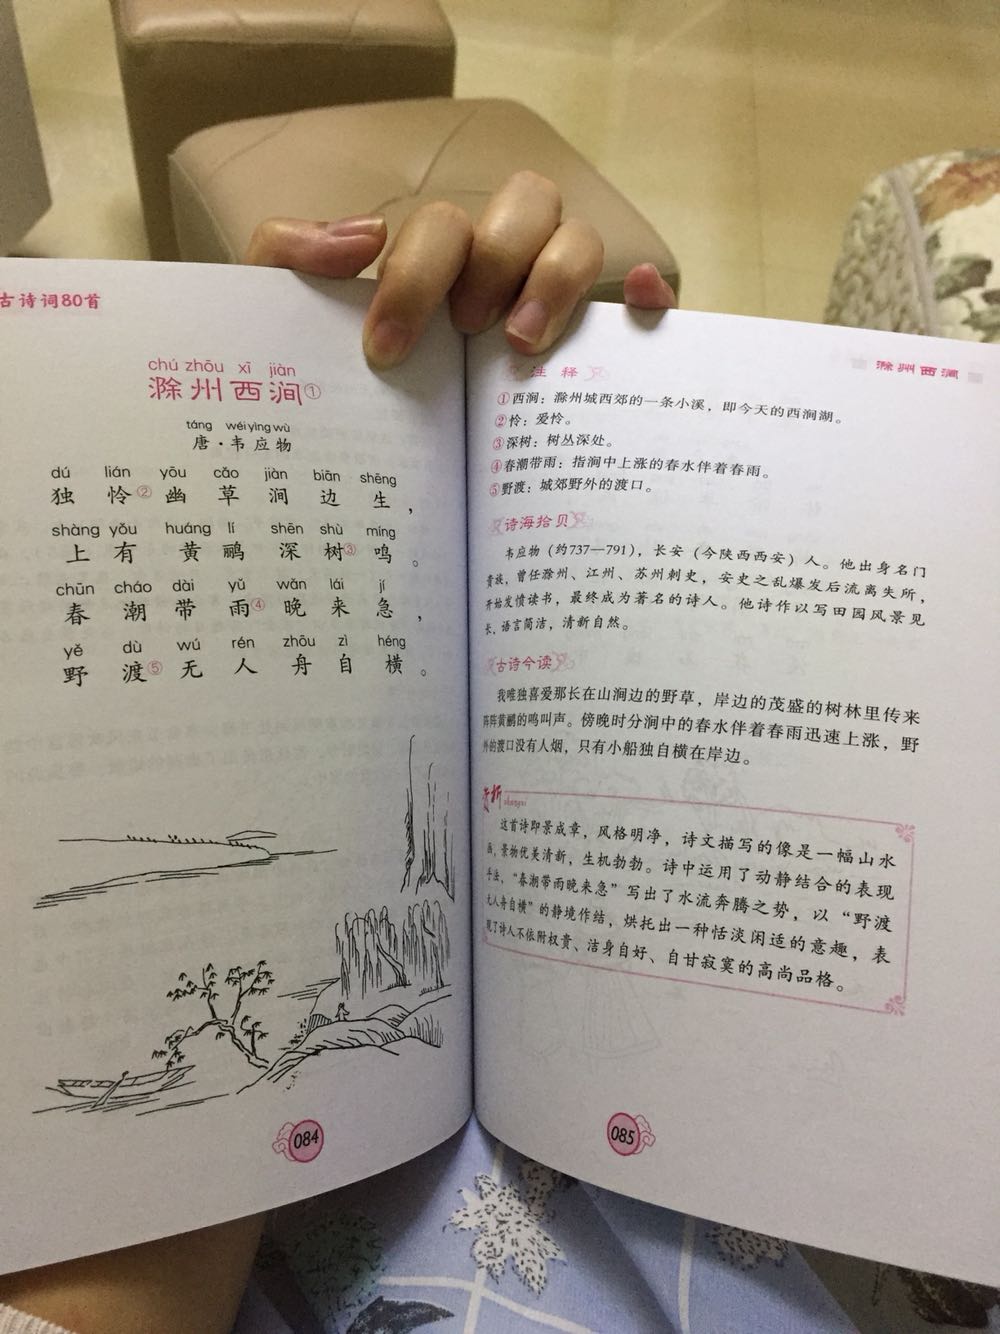 古诗词80首
chú zhōu xī jiàn
滁州西涧①
táng wéi yìng wù
唐·韦应物
dú lián yōu cǎo jiàn biān shēng
独怜②幽草涧边生，
shàng yǒu huáng lí shēn shù míng
上有黄鹂深树③鸣。
chūn cháo dài yǔ wǎn lái jí
春潮带雨④晚来急，
yě dù wú rén zhōu zì héng
野渡⑤无人舟自横。
084
滁州西涧
注释
①西涧：滁州城西郊的一条小溪，即今天的西涧湖。
②怜：爱怜。
③深树：树丛深处。
④春潮带雨：指涧中上涨的春水伴着春雨。
⑤野渡：城郊野外的渡口。
诗海拾贝
韦应物（约737—791），长安（今陕西西安）人。他出身名门
贵族，曾任滁州、江州、苏州刺史，安史之乱爆发后流离失所，
开始发愤读书，最终成为著名的诗人。他诗作以写田园风景见
长，语言简洁，清新自然。
古诗今读
我唯独喜爱那长在山涧边的野草，岸边的茂盛的树林里传来
阵阵黄鹂的鸣叫声。傍晚时分涧中的春水伴着春雨迅速上涨，野
外的渡口没有人烟，只有小船独自横在岸边。
赏析 shangxi
这首诗即景成章，风格明净，诗文描写的像是一幅山水
画，景物优美清新，生机勃勃。诗中运用了动静结合的表现
手法，“春潮带雨晚来急”写出了水流奔腾之势，以“野渡
无人舟自横”的静境作结，烘托出一种恬淡闲适的意趣，表
现了诗人不依附权贵、洁身自好、自甘寂寞的高尚品格。
085